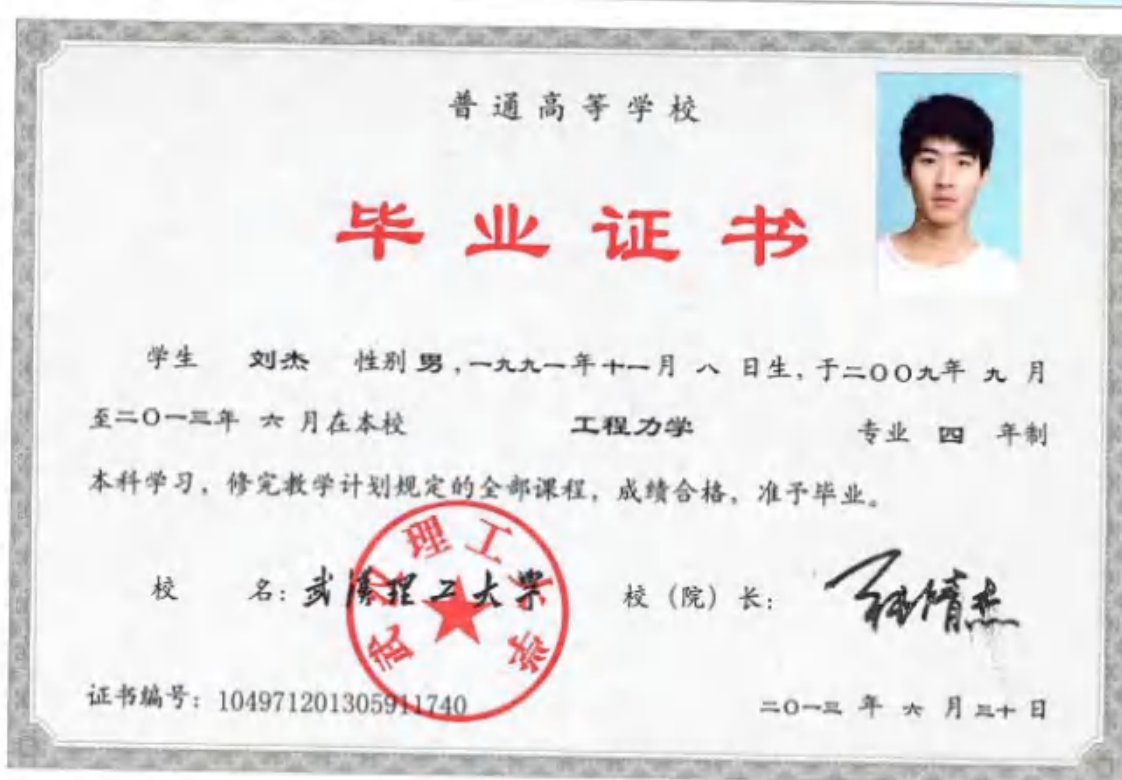 普通高等学校
毕业证书
学生 刘杰 性别 男，一九九一年十一月 八 日生，于二〇〇九年 九 月
至二〇一三年 六 月在本校 工程力学 专业 四 年制
本科学习，修完教学计划规定的全部课程，成绩合格，准予毕业。
校 名：武汉理工大学 校（院）长：
武汉理工大学
证书编号：104971201305911740 二〇一三 年 六 月 三十 日